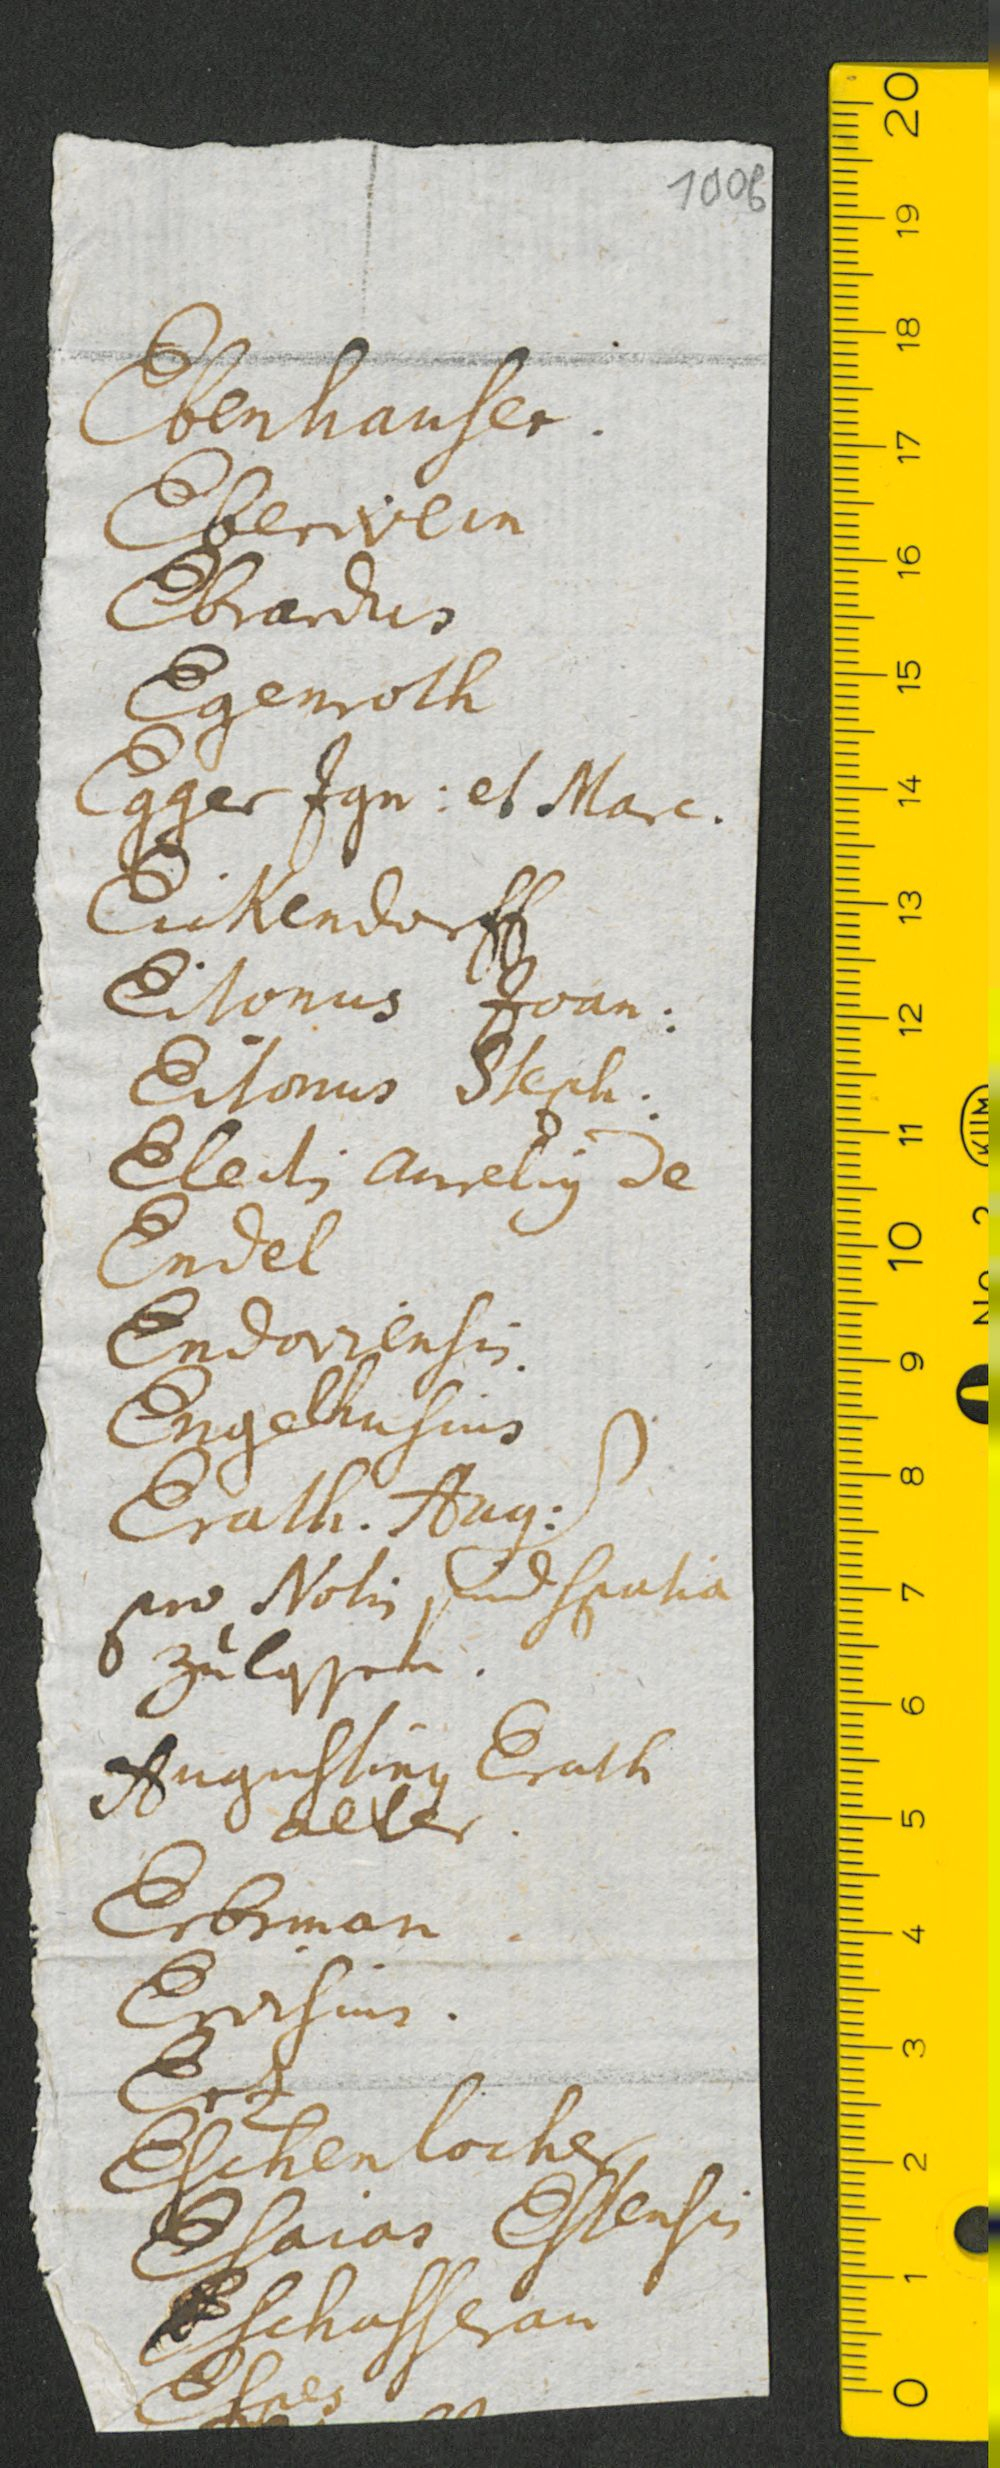 1006
Ebenhauser.
Eberwein
Ebrardus
Egenroth
Egger Ign: et Marc.
Eickendorff
Eitonus Joan:
Eitonus Steph:
Electis Aurelij de
Endel
Endoviensis
Engelhusius
Erath. Aug:
pro Notis sind spatia
zu lassen.
Augustinus Erath
alter.
Erbrman
Ervisius.
Ertl
Eschenlocher
Esaias Estensis
Eschasserau